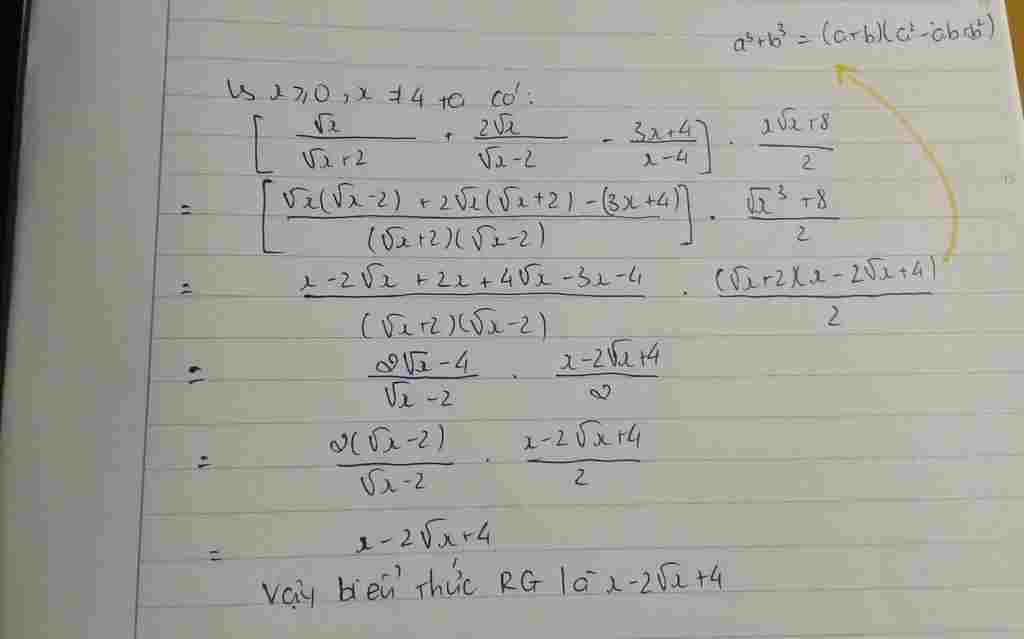 a³+b³ = (a+b)(a²-ab+b²)
Vs x ⩾ 0, x ≠ 4 ta có:
[ √x/(√x+2) + 2√x/(√x-2) - (3x+4)/(x-4) ] . (x√x+8)/2
= [ (√x(√x-2) + 2√x(√x+2) - (3x+4))/((√x+2)(√x-2)) ] . (√x³+8)/2
= (x-2√x+2x+4√x-3x-4)/((√x+2)(√x-2)) . ((√x+2)(x-2√x+4))/2
= (2√x-4)/(√x-2) . (x-2√x+4)/2
= (2(√x-2))/(√x-2) . (x-2√x+4)/2
= x-2√x+4
Vậy biểu thức RG là x-2√x+4